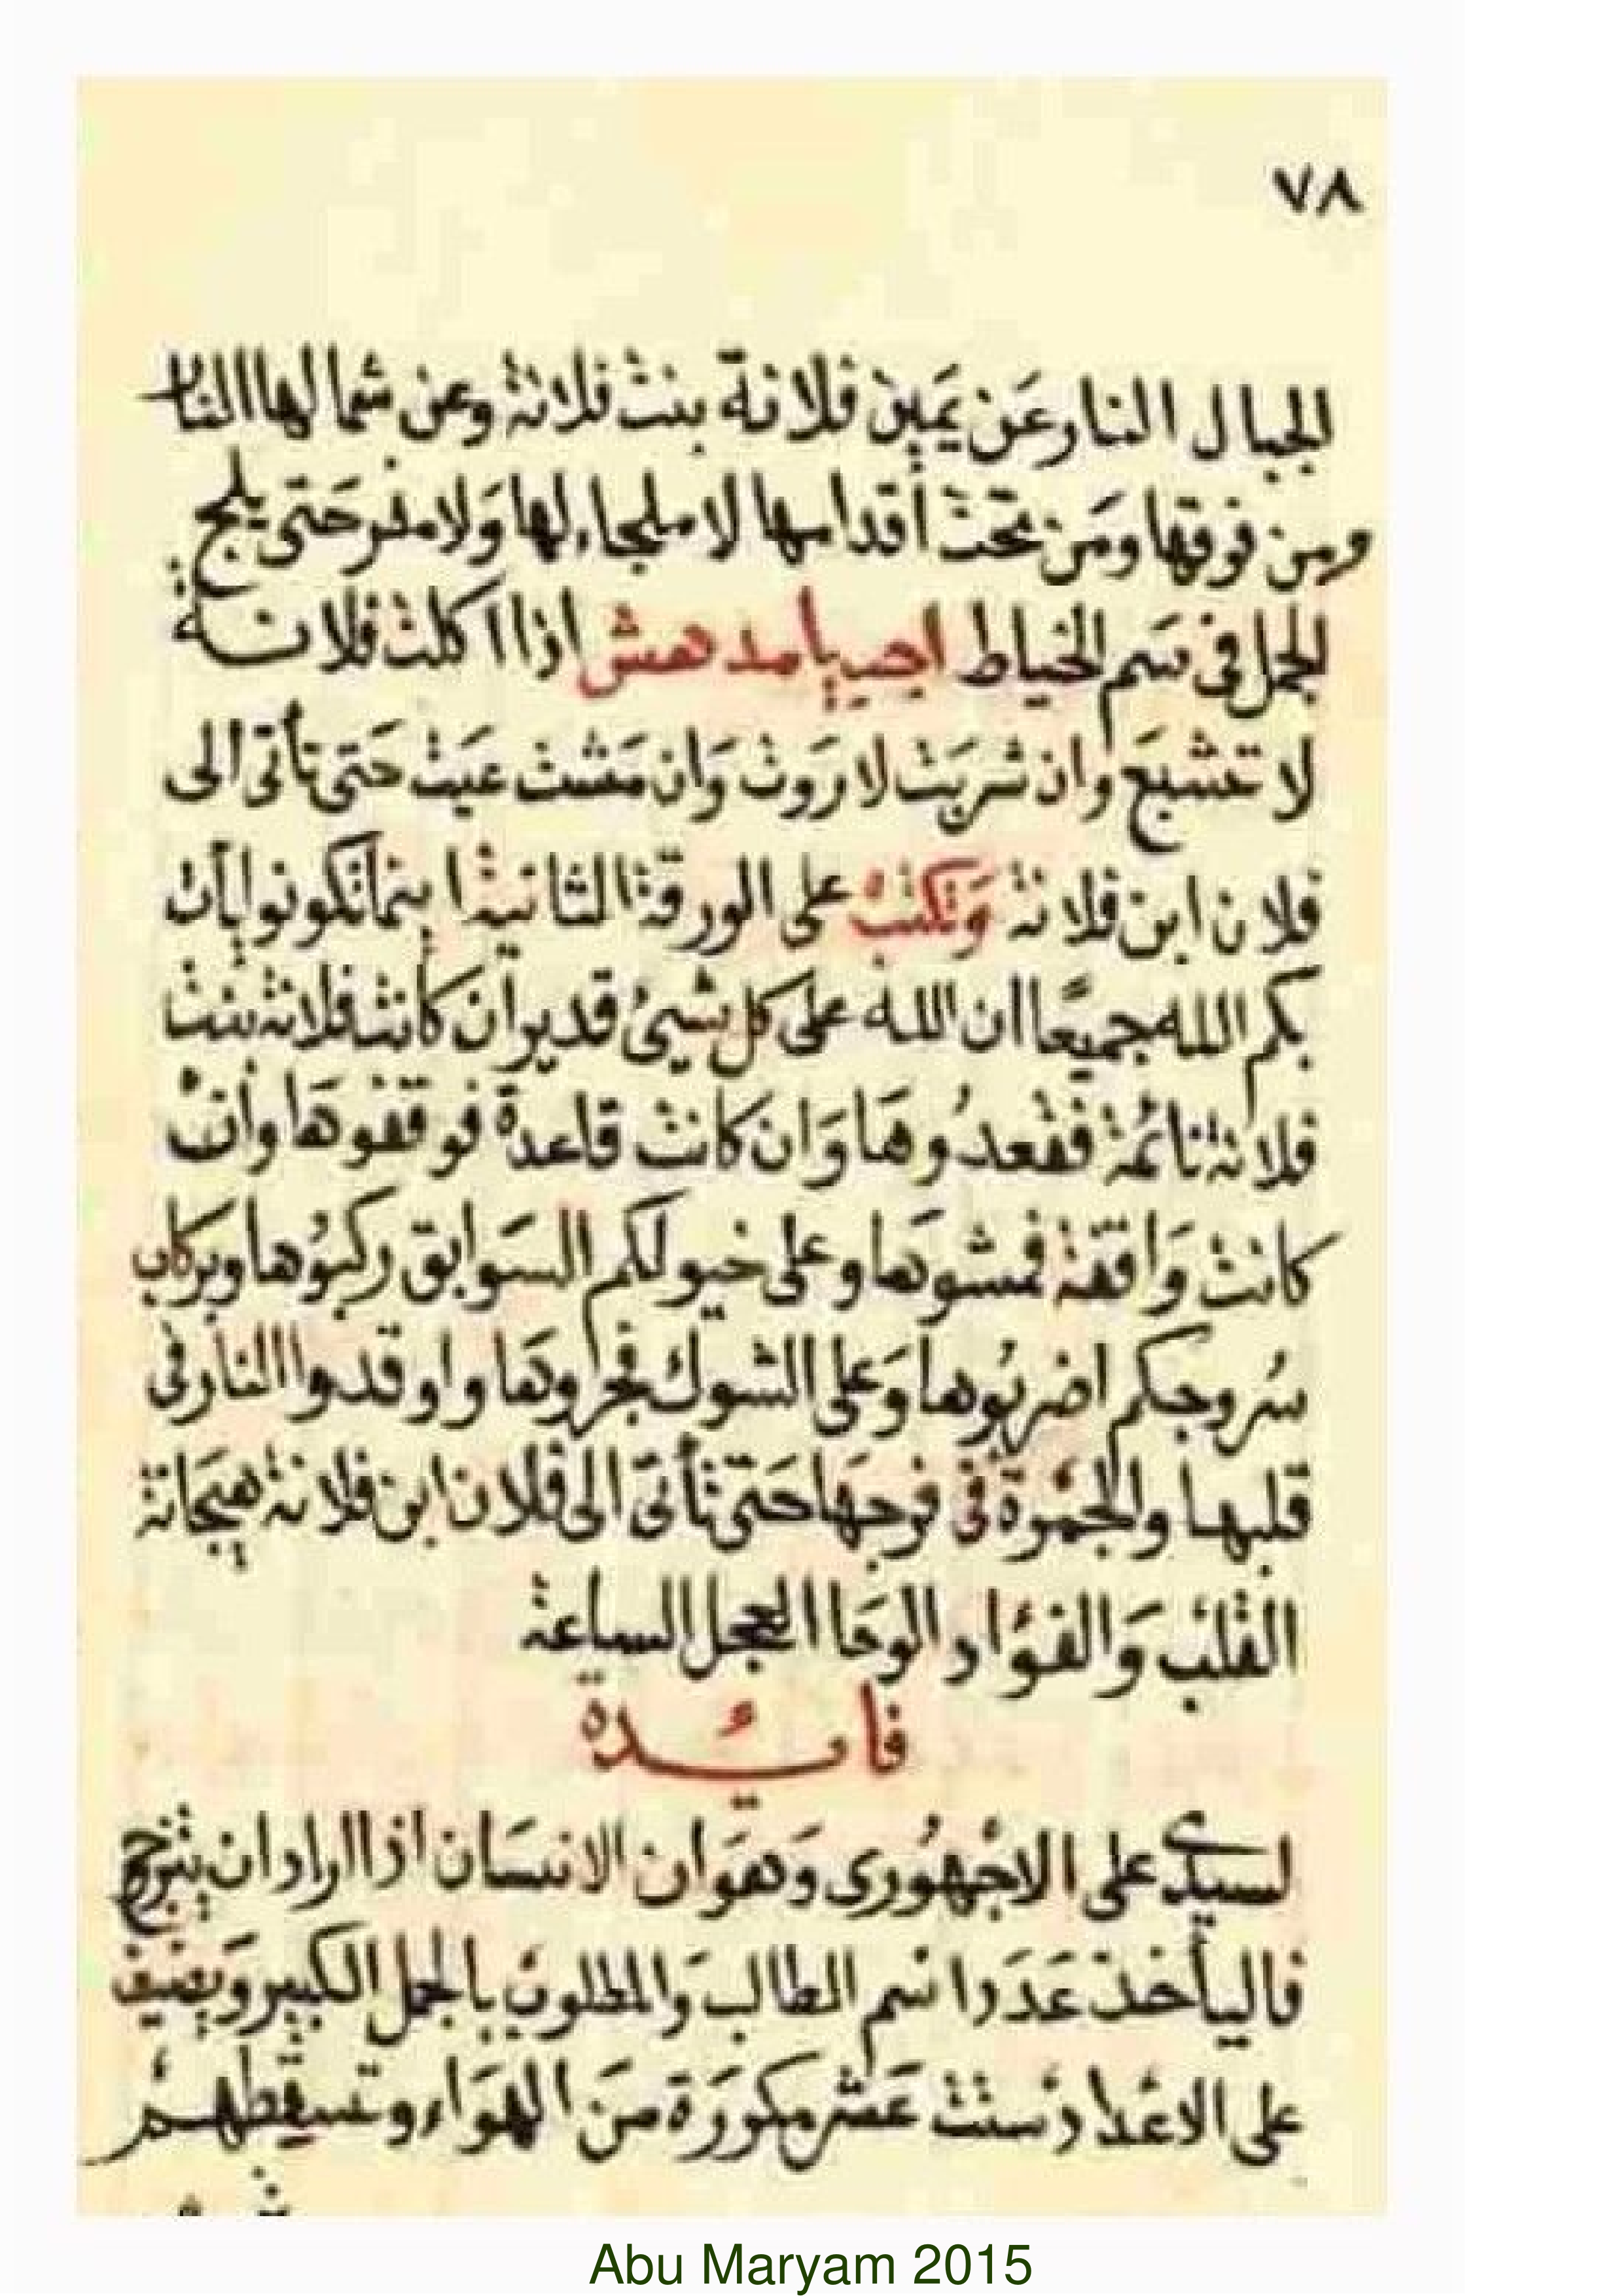 ٧٨
الجبال النار عَن يمَين فلانة بنت فلانة وعن شمالها النار
ومن فوقها ومَن تحت أقدامها لا ملجاء لها وَلا مفر حَتى يلج
الجمل فى سَم الخياط اجِيبيا مدهش اذا اكلت فلانة
لا تشبَع وان شربَت لا رَوت وَان مَشت عيَت حَتى تأتى الى
فلان ابن فلانة وَتكتب على الورقة الثانية اينما تكونوا يأت
بكم الله جميعًا ان الله على كل شيئ قدير ان كانت فلانة بنت
فلانة نائمة فقعدُوها وَان كانت قاعدة فوقفوهَا وأن
كانت وَاقفة فمشوهَا وعلى خيولكم السَوابق ركبوُها وبركاب
سُروجكم اضربُوها وَعلى الشوك فجروهَا واوقدوا النار فى
قلبها والجمرة فى فرجهَا حَتى تأتى الى فلان ابن فلانة هيجَانة
القلب وَالفؤاد الوَحا العجل الساعة
فايئدة
لسيدى على الاجهُورى وَهوَ ان الانسَان اذا اراد ان يتزوج
فاليأخذ عَدَد اسم الطالب وَالمطلوب بالجمل الكبير وَيضيف
على الاعداد ستت عَشر مكورَة منَ الهوَاء وتسقطهم